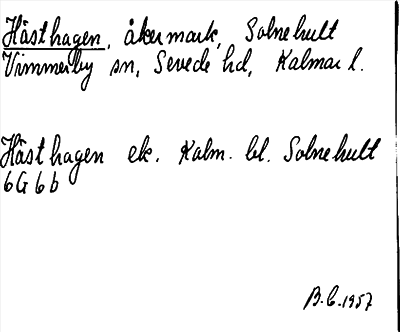 Hästhagen, åkermark, Solnehult
Vimmerby sn, Sevede hd, Kalmar l.
Hästhagen ek. Kalm. bl. Solnehult
6G6b
B.C. 1957